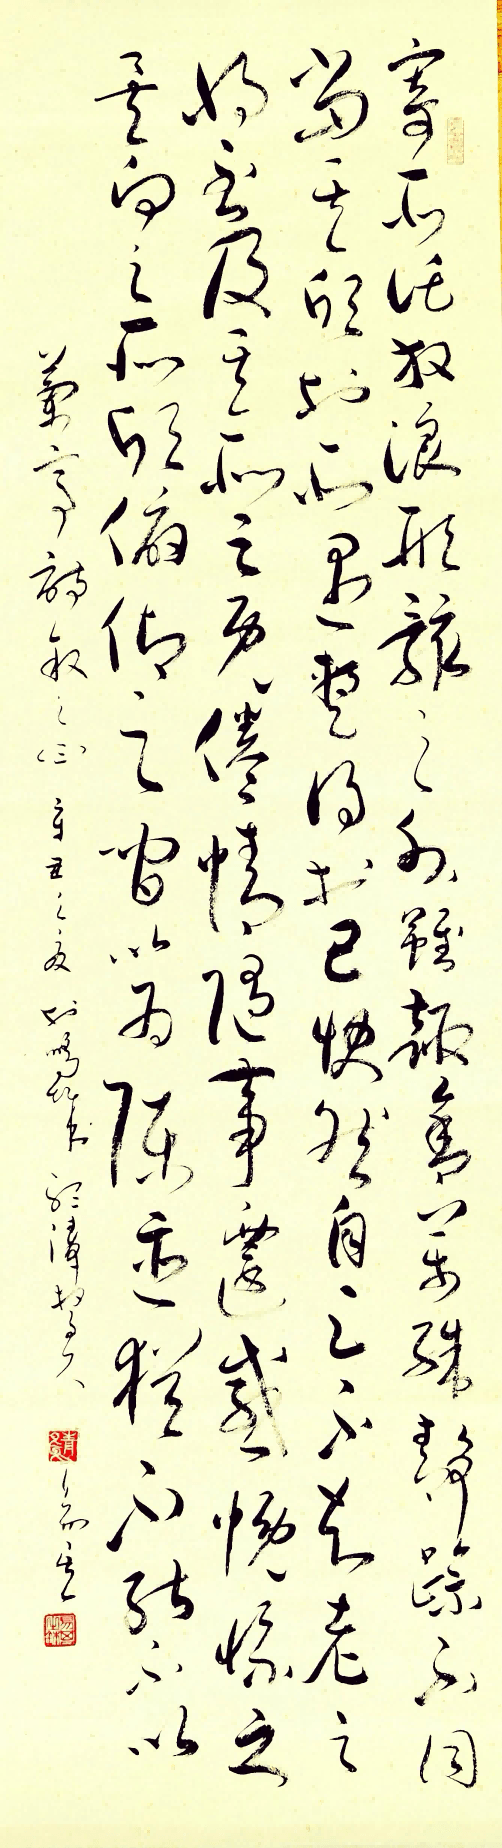 寄所託放浪形骸之外雖趣舍萬殊靜躁不同
當其欣於所遇暫得於己快然自足不知老之
將至及其所之既倦情隨事遷感慨係之
矣向之所欣俯仰之間以為陳迹猶不能不以
蘭亭詩敘之 辛丑之夏 於鳴 書